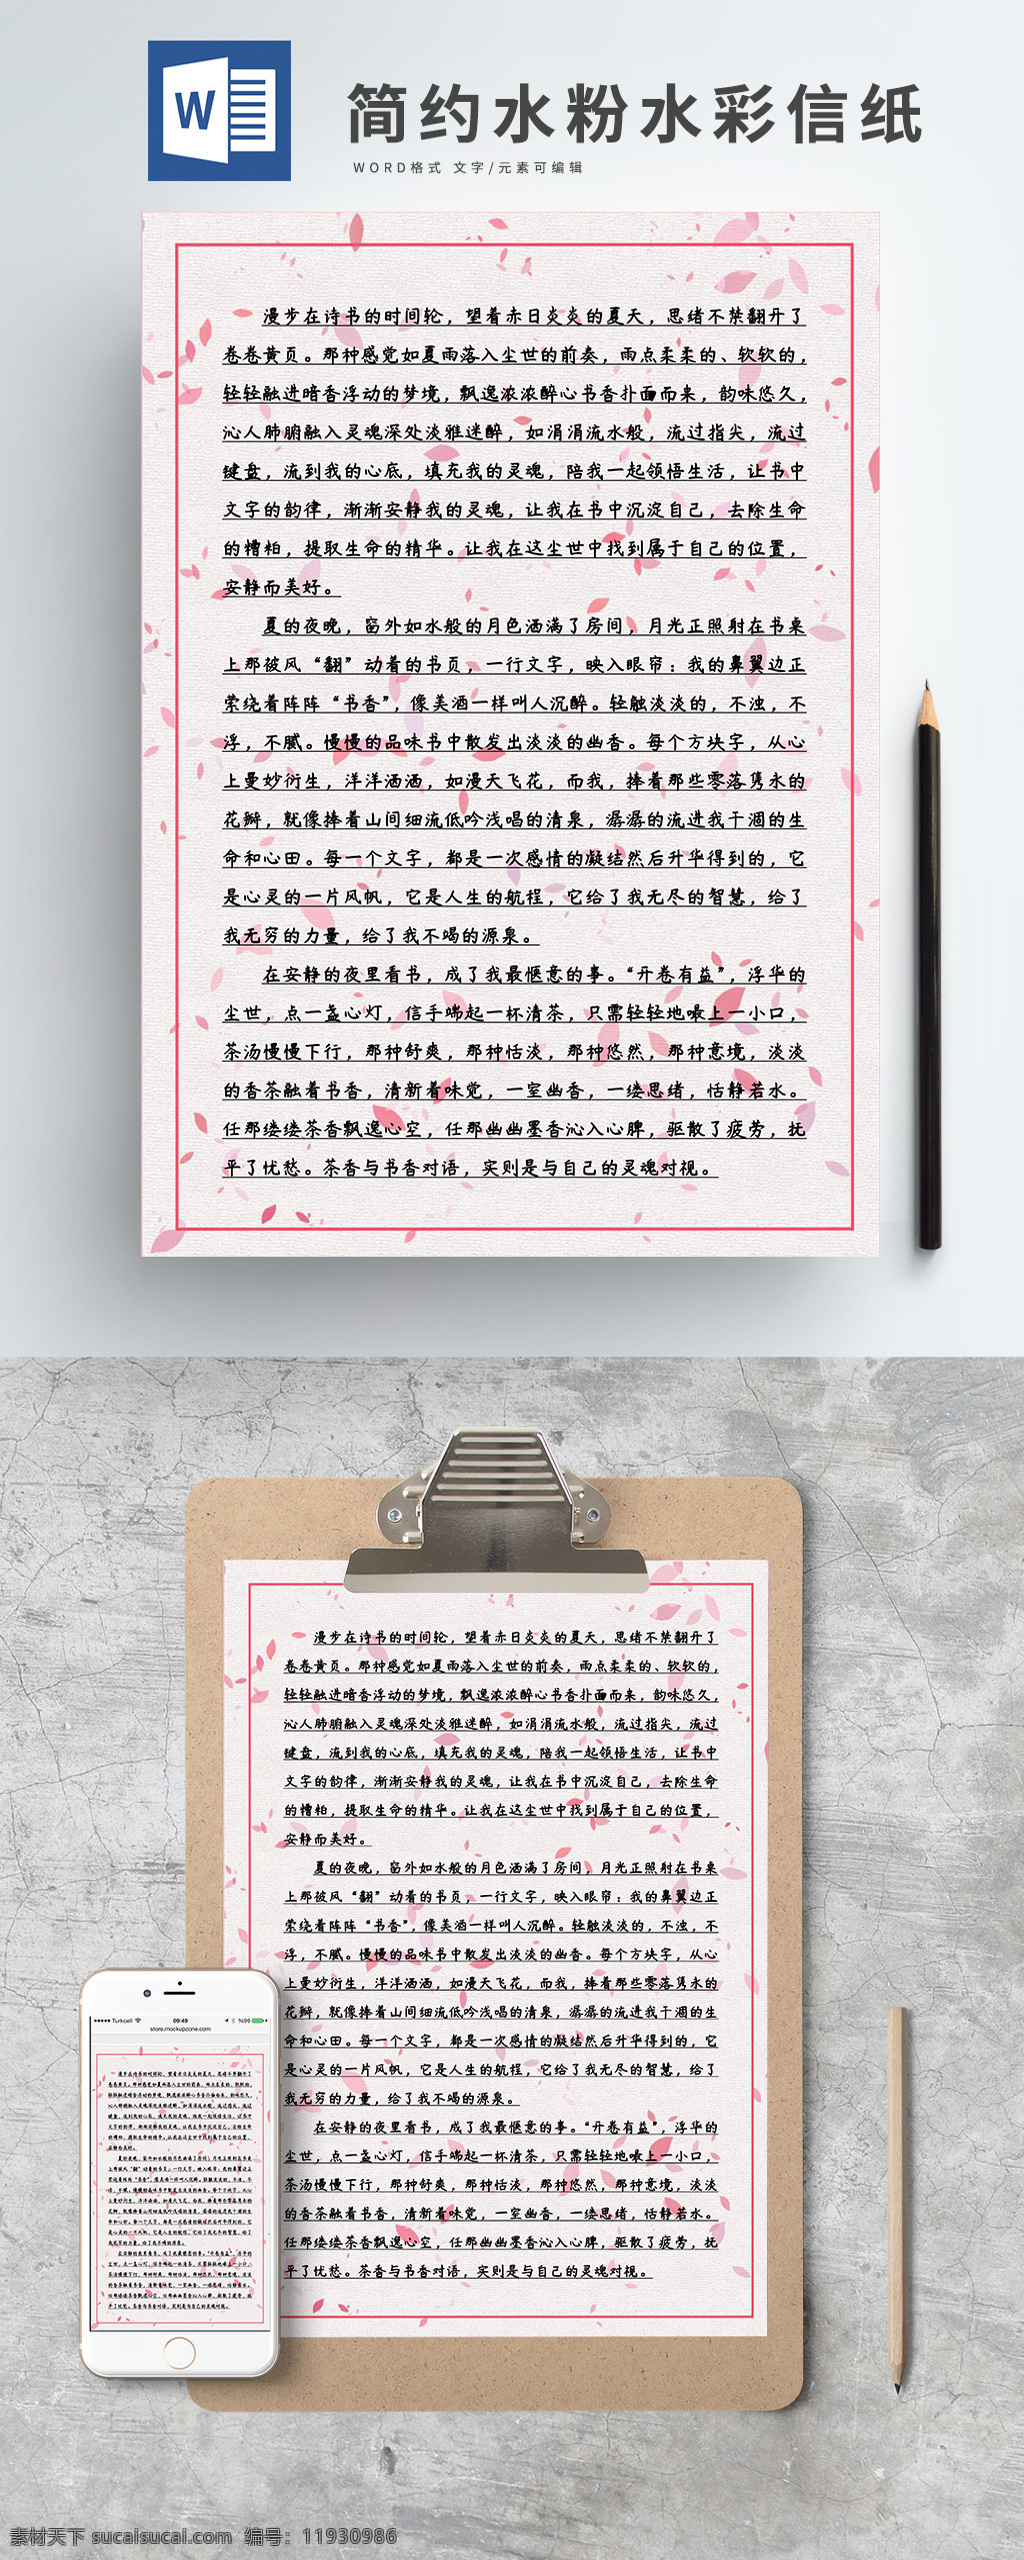 W
简约水粉水彩信纸
WORD格式 文字/元素可编辑
漫步在诗书的时间轮，望着赤日炎炎的夏天，思绪不禁翻开了
卷卷黄页。那种感觉如夏雨落入尘世的前奏，雨点柔柔的、软软的，
轻轻融进暗香浮动的梦境，飘逸浓浓醉心书香扑面而来，韵味悠久，
沁人肺腑融入灵魂深处淡雅迷醉，如涓涓流水般，流过指尖，流过
键盘，流到我的心底，填充我的灵魂，陪我一起领悟生活，让书中
文字的韵律，渐渐安静我的灵魂，让我在书中沉淀自己，去除生命
的糟粕，提取生命的精华。让我在这尘世中找到属于自己的位置，
安静而美好。
夏的夜晚，窗外如水般的月色洒满了房间，月光正照射在书桌
上那被风“翻”动着的书页，一行文字，映入眼帘：我的鼻翼边正
萦绕着阵阵“书香”，像美酒一样叫人沉醉。轻触淡淡的，不浊，不
浮，不腻。慢慢的品味书中散发出淡淡的幽香。每个方块字，从心
上曼妙衍生，洋洋洒洒，如漫天飞花，而我，捧着那些零落隽永的
花瓣，就像捧着山间细流低吟浅唱的清泉，潺潺的流进我干涸的生
命和心田。每一个文字，都是一次感情的凝结然后升华得到的，它
是心灵的一片风帆，它是人生的航程，它给了我无尽的智慧，给了
我无穷的力量，给了我不竭的源泉。
在安静的夜里看书，成了我最惬意的事。“开卷有益”，浮华的
尘世，点一盏心灯，信手端起一杯清茶，只需轻轻地嘬上一小口，
茶汤慢慢下行，那种舒爽，那种恬淡，那种悠然，那种意境，淡淡
的香茶融着书香，清新着味觉，一室幽香，一缕思绪，恬静若水。
任那缕缕茶香飘逸心空，任那幽幽墨香沁入心脾，驱散了疲劳，抚
平了忧愁。茶香与书香对语，实则是与自己的灵魂对视。
漫步在诗书的时间轮，望着赤日炎炎的夏天，思绪不禁翻开了
卷卷黄页。那种感觉如夏雨落入尘世的前奏，雨点柔柔的、软软的，
轻轻融进暗香浮动的梦境，飘逸浓浓醉心书香扑面而来，韵味悠久，
沁人肺腑融入灵魂深处淡雅迷醉，如涓涓流水般，流过指尖，流过
键盘，流到我的心底，填充我的灵魂，陪我一起领悟生活，让书中
文字的韵律，渐渐安静我的灵魂，让我在书中沉淀自己，去除生命
的糟粕，提取生命的精华。让我在这尘世中找到属于自己的位置，
安静而美好。
夏的夜晚，窗外如水般的月色洒满了房间，月光正照射在书桌
上那被风“翻”动着的书页，一行文字，映入眼帘：我的鼻翼边正
萦绕着阵阵“书香”，像美酒一样叫人沉醉。轻触淡淡的，不浊，不
浮，不腻。慢慢的品味书中散发出淡淡的幽香。每个方块字，从心
上曼妙衍生，洋洋洒洒，如漫天飞花，而我，捧着那些零落隽永的
花瓣，就像捧着山间细流低吟浅唱的清泉，潺潺的流进我干涸的生
命和心田。每一个文字，都是一次感情的凝结然后升华得到的，它
是心灵的一片风帆，它是人生的航程，它给了我无尽的智慧，给了
我无穷的力量，给了我不竭的源泉。
在安静的夜里看书，成了我最惬意的事。“开卷有益”，浮华的
尘世，点一盏心灯，信手端起一杯清茶，只需轻轻地嘬上一小口，
茶汤慢慢下行，那种舒爽，那种恬淡，那种悠然，那种意境，淡淡
的香茶融着书香，清新着味觉，一室幽香，一缕思绪，恬静若水。
任那缕缕茶香飘逸心空，任那幽幽墨香沁入心脾，驱散了疲劳，抚
平了忧愁。茶香与书香对语，实则是与自己的灵魂对视。
Turkcell 09:49 %99
store.mockupzone.com
素材天下 sucaisucai.com 编号：11930986